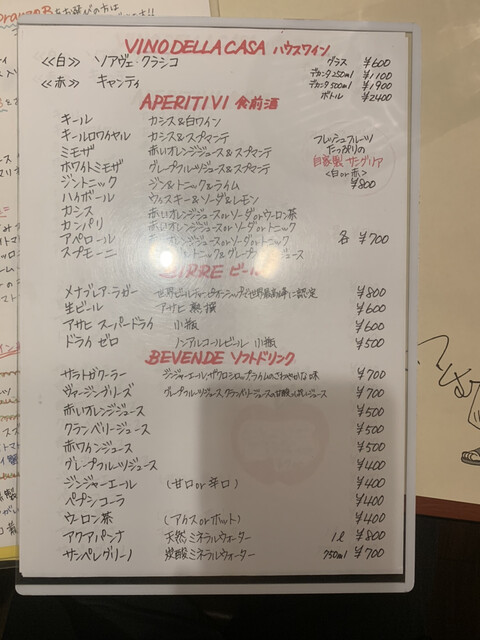 VINO DELLA CASA ハウスワイン
≪白≫ ソアヴェ・クラシコ グラス ¥600
デカンタ250ml ¥1100
≪赤≫ キャンティ デカンタ500ml ¥1900
ボトル ¥2400
APERITIVI 食前酒
キール カシス&白ワイン
キールロワイヤル カシス&スプマンテ
ミモザ 赤いオレンジジュース&スプマンテ
ホワイトミモザ グレープフルーツジュース&スプマンテ
ジントニック ジン&トニック&ライム
ハイボール ウィスキー&ソーダ&レモン
カシス 赤いオレンジジュースorソーダorウーロン茶
カンパリ 赤いオレンジジュースorソーダorトニック
アペロール 赤いオレンジジュースorソーダorトニック
スプモーニ トニック&グレープフルーツジュース
各 ¥700
フレッシュフルーツ
たっぷりの
自家製サングリア
<白or赤>
¥800
BIRRE ビール
メナブレア・ラガー 世界ビールチャンピオンシップで世界最高峰に認定 ¥800
生ビール アサヒ 熟撰 ¥600
アサヒ スーパードライ 小瓶 ¥600
ドライ ゼロ ノンアルコールビール 小瓶 ¥500
BEVENDE ソフトドリンク
サラトガクーラー ジンジャーエール、ザクロシロップ、ライムのさわやかな味 ¥700
ヴァージンブリーズ グレープフルーツジュース、クランベリージュースの甘酸っぱいジュース ¥700
赤いオレンジジュース ¥500
クランベリージュース ¥500
赤ワインジュース ¥500
グレープフルーツジュース ¥400
ジンジャーエール (甘口or辛口) ¥400
ペプシコーラ ¥400
ウーロン茶 (アイスorホット) ¥400
アクアパンナ 天然ミネラルウォーター 1l ¥800
サンペレグリーノ 炭酸ミネラルウォーター 750ml ¥700